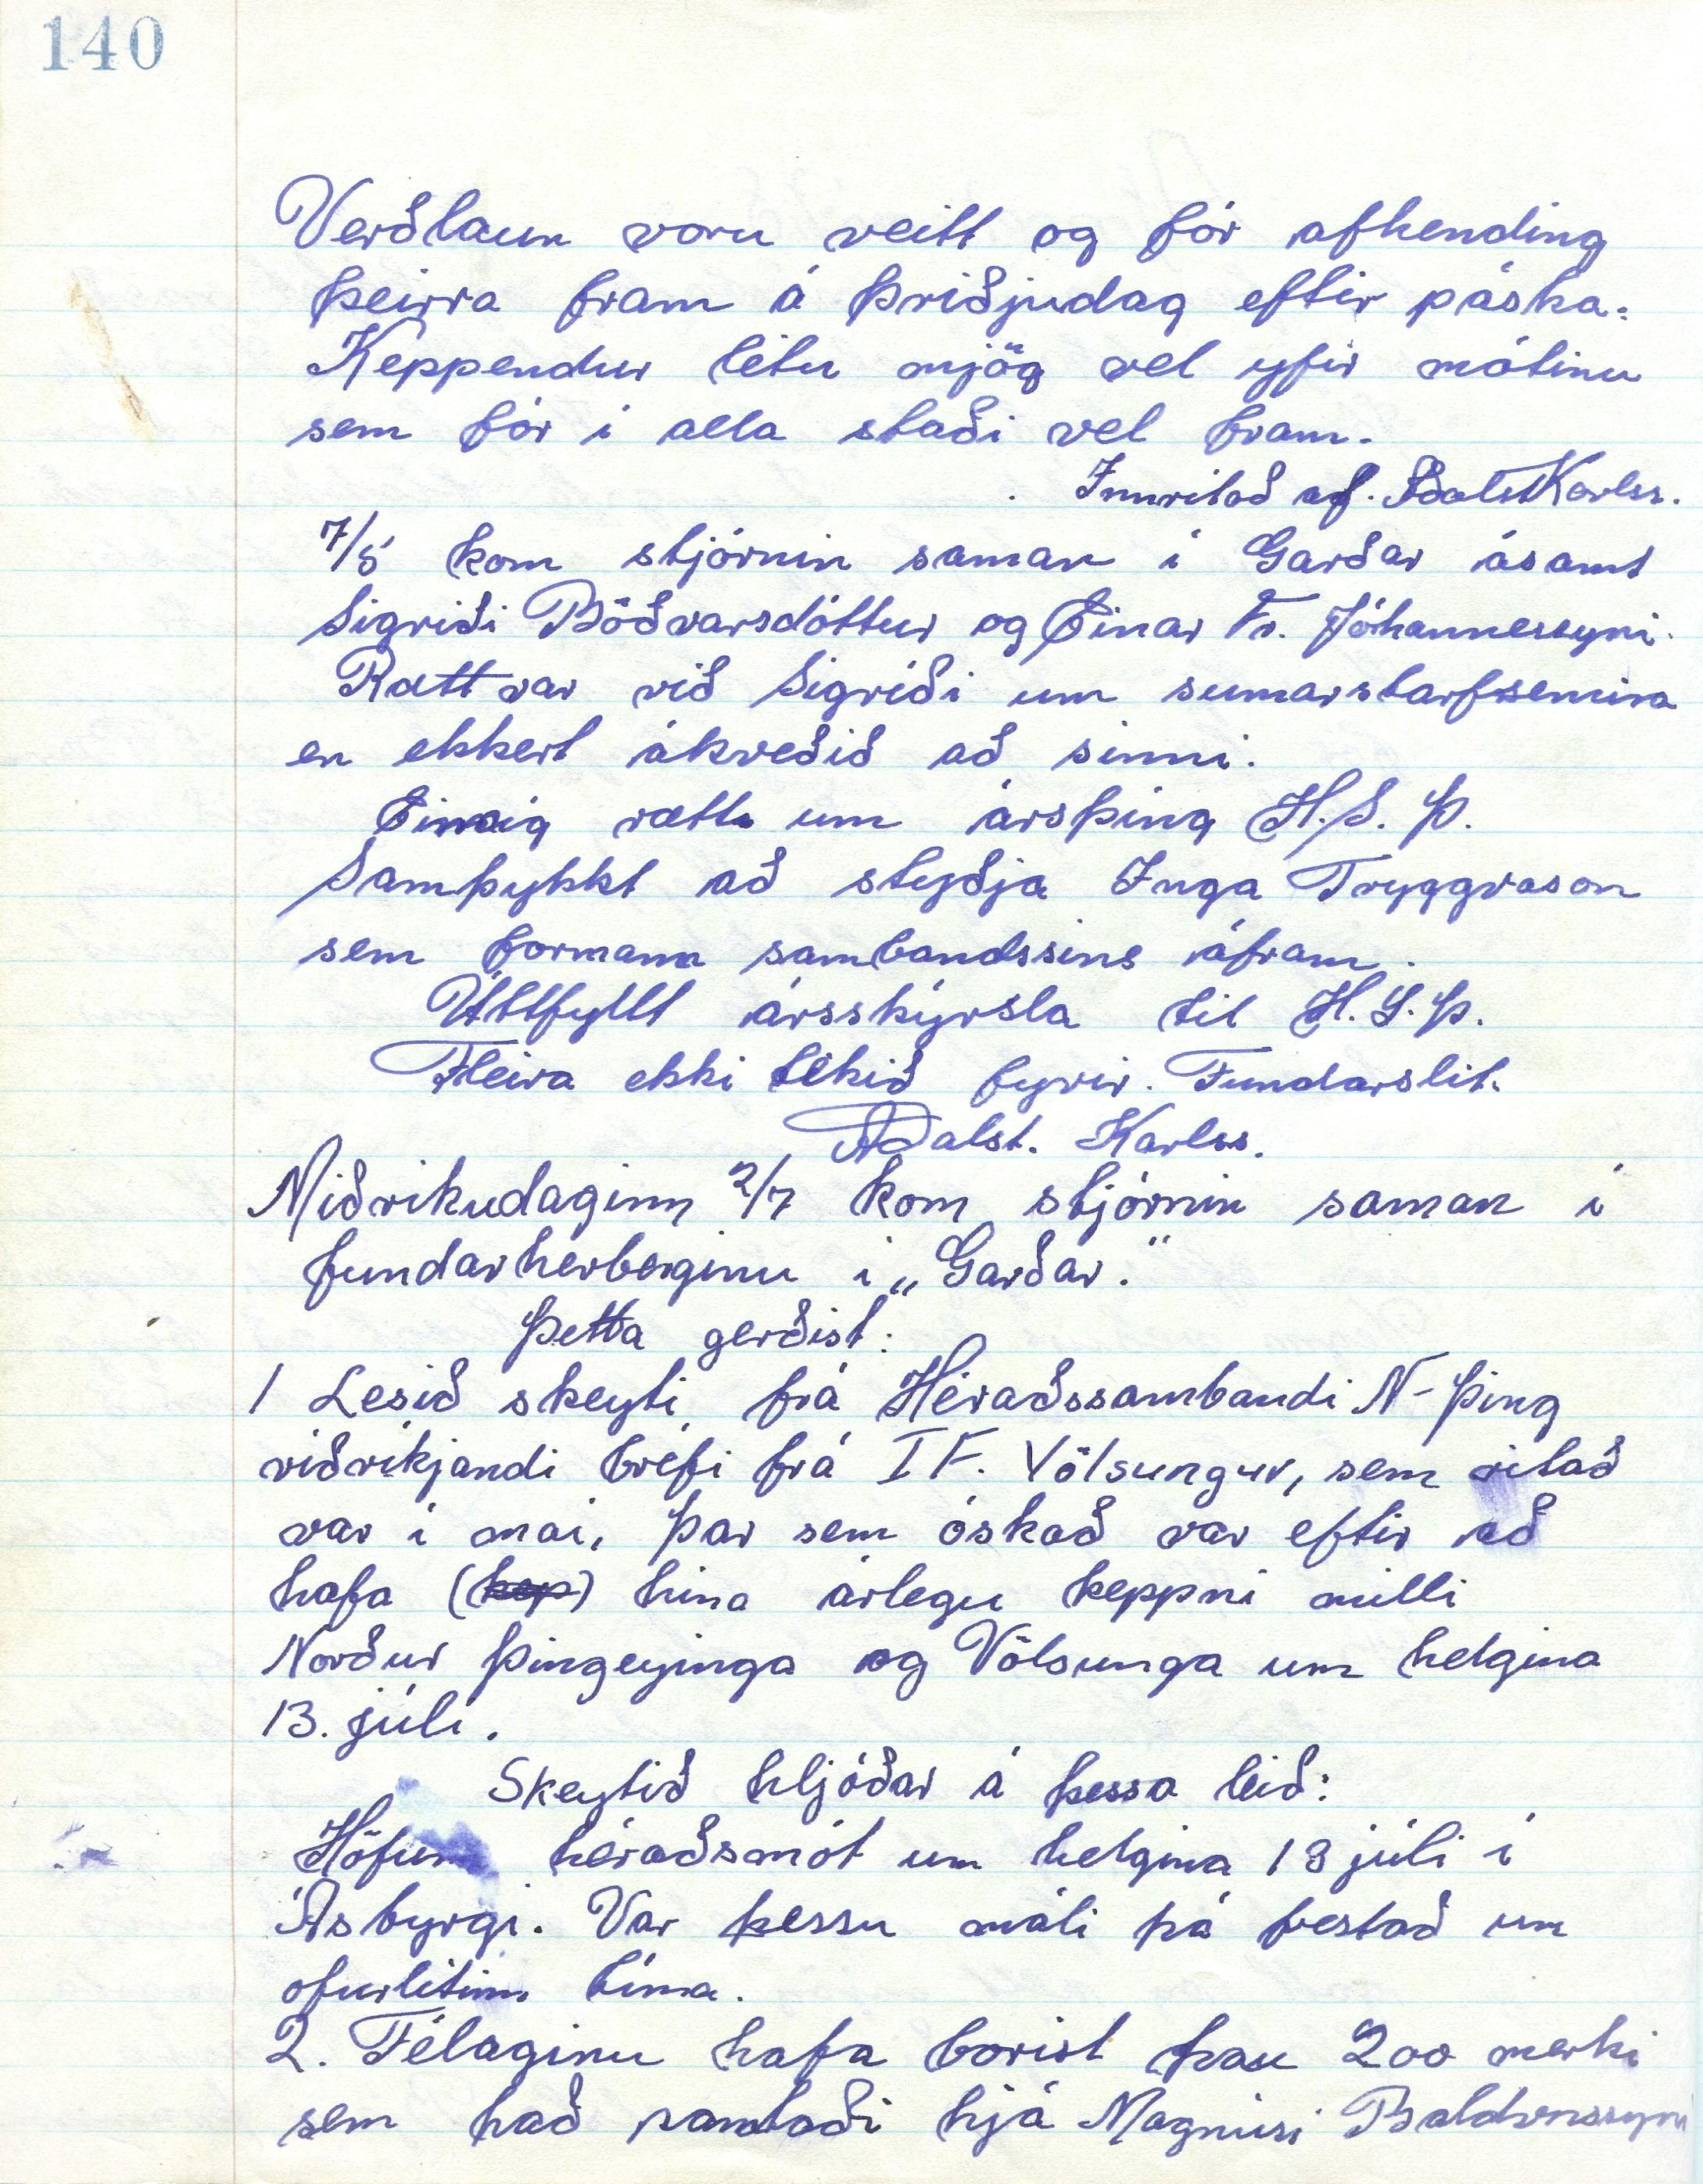 140
Verðlaun voru veitt og fór afhending
þeirra fram á þriðjudag eftir páska.
Keppendur létu mjög vel yfir mótinu
sem fór í alla staði vel fram.
Innritað af. Aðalst Karlss.
7/5 kom stjórnin saman í Garðar ásamt
Sigríði Böðvarsdóttur og Einar Fr. Jóhannessyni.
Rætt var við Sigríði um sumarstarfsemina
en ekkert ákveðið að sinni.
Einnig rætt um ársþing H.S.Þ.
Samþykkt að styðja Inga Tryggvason
sem formann sambandssins áfram.
Útfyllt ársskýrsla til H.S.Þ.
Fleira ekki tekið fyrir. Fundarslit.
Aðalst. Karlss.
Miðvikudaginn 2/7 kom stjórnin saman í
fundarherberginu í „Garðar."
Þetta gerðist:
1 Lesið skeyti frá Héraðssambandi N-Þing
viðvíkjandi bréfi frá IF. Völsungur, sem ritað
var í maí, þar sem óskað var eftir að
hafa (kep) hina árlegu keppni milli
Norður Þingeyinga og Völsunga um helgina
13. júlí.
Skeytið hljóðar á þessa leið:
Höfum héraðsmót um helgina 13 júlí í
Ásbyrgi. Var þessu máli þá frestað um
ofurlítinn tíma.
2. Félaginu hafa borist þau 200 merki
sem það pantaði hjá Magnúsi Baldvinssyni